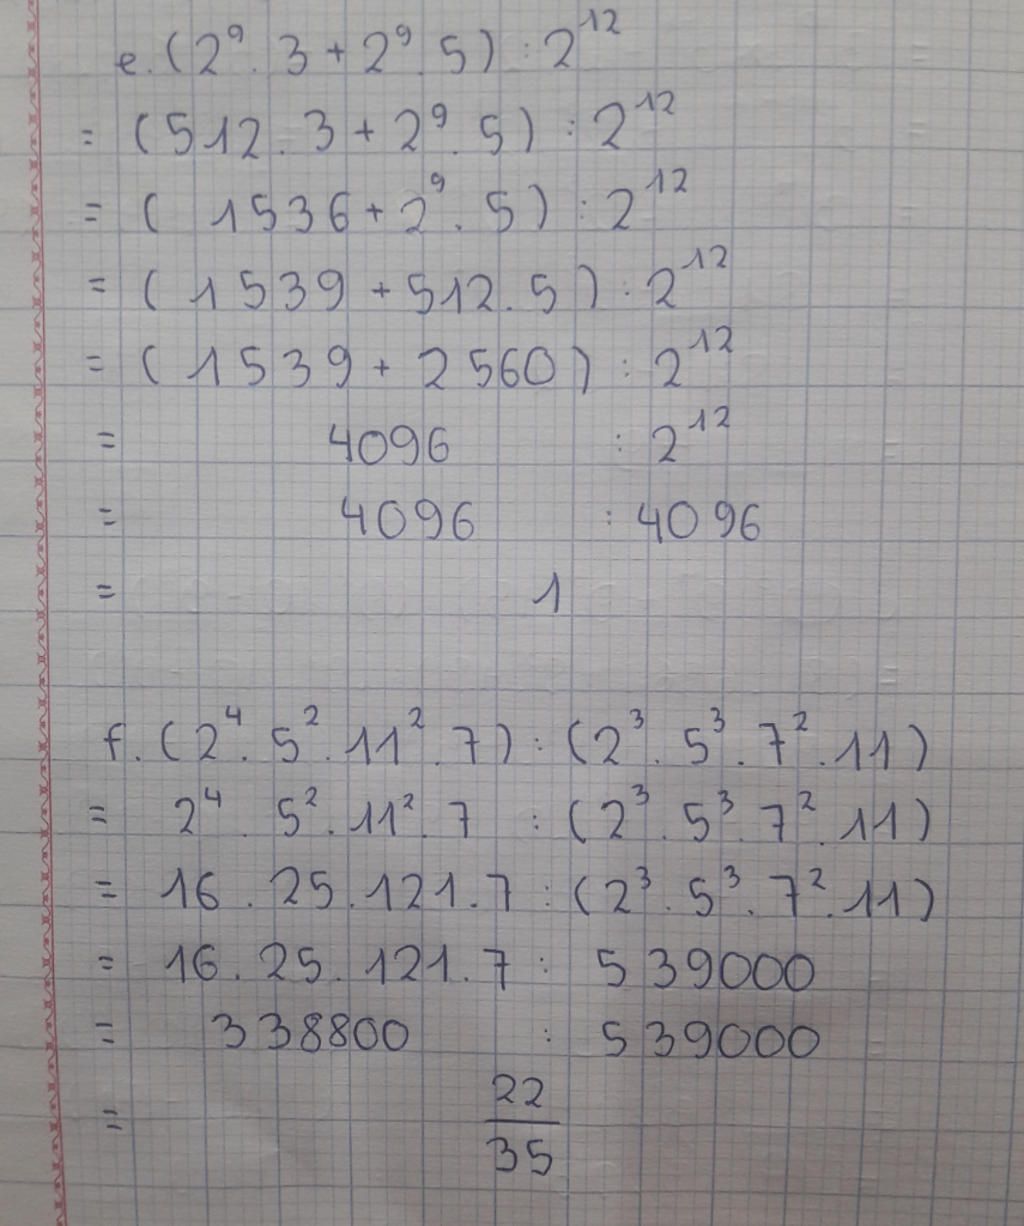 e. (2⁹ . 3 + 2⁹ . 5) : 2¹²
= (512 . 3 + 2⁹ . 5) : 2¹²
= ( 1536 + 2⁹ . 5) : 2¹²
= ( 1539 + 512 . 5) : 2¹²
= ( 1539 + 2560) : 2¹²
= 4096 : 2¹²
= 4096 : 4096
= 1
f. (2⁴ . 5² . 11² . 7) : (2³ . 5³ . 7² . 11)
= 2⁴ . 5² . 11² . 7 : (2³ . 5³ . 7² . 11)
= 16 . 25 . 121 . 7 : (2³ . 5³ . 7² . 11)
= 16 . 25 . 121 . 7 : 539000
= 338800 : 539000
= 22/35